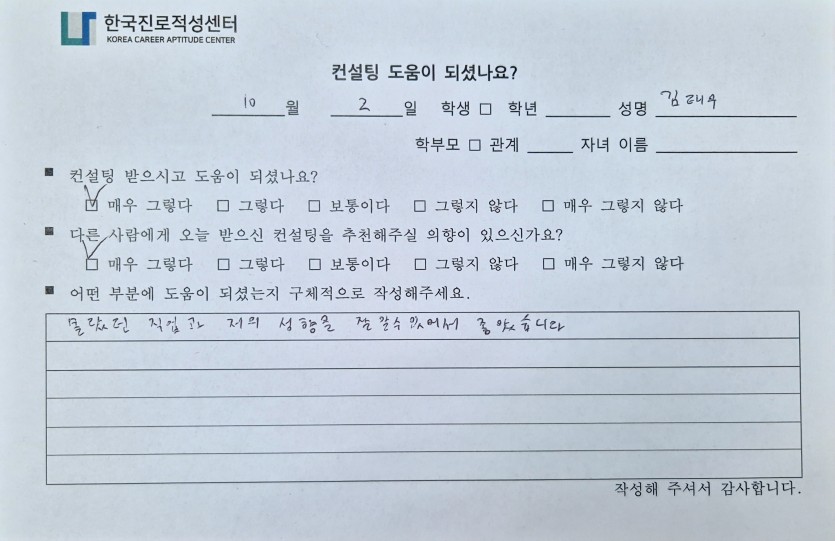 한국진로적성센터
KOREA CAREER APTITUDE CENTER
컨설팅 도움이 되셨나요?
10 월 2 일 학생 □ 학년 성명 김태수
학부모 □ 관계 자녀 이름
■ 컨설팅 받으시고 도움이 되셨나요?
☑ 매우 그렇다 □ 그렇다 □ 보통이다 □ 그렇지 않다 □ 매우 그렇지 않다
■ 다른 사람에게 오늘 받으신 컨설팅을 추천해주실 의향이 있으신가요?
☑ 매우 그렇다 □ 그렇다 □ 보통이다 □ 그렇지 않다 □ 매우 그렇지 않다
■ 어떤 부분에 도움이 되셨는지 구체적으로 작성해주세요.
몰랐던 직업과 저의 성향을 잘 알수 있어서 좋았습니다
작성해 주셔서 감사합니다.